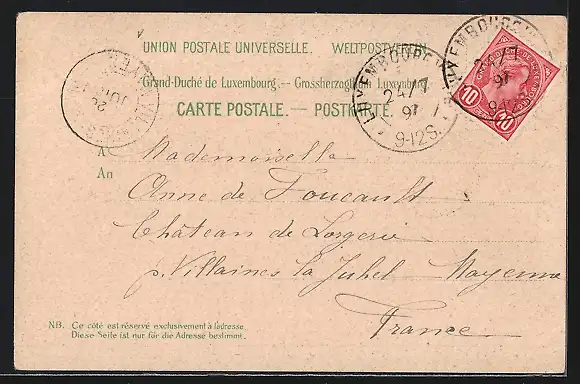 UNION POSTALE UNIVERSELLE. WELTPOSTVEREIN.
Grand-Duché de Luxembourg. — Grossherzogthum Luxemburg.
CARTE POSTALE. — POSTKARTE.
LUXEMBOURG
24/7
97
9-12S.
LUXEMBOURG
24/7
97
9-12S.
10
10
26
JUIL
A
An
Mademoiselle
Anne de Foucault
Château de Lorgerie
p. Villaines la Juhel Mayenne
France
NB. Ce côté est réservé exclusivement à ladresse.
Diese Seite ist nur für die Adresse bestimmt.